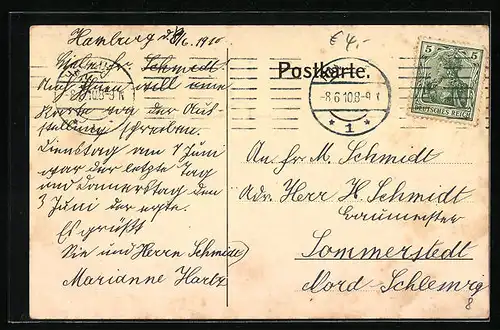 Hamburg d. 8/6. 1910
€ 4,-
Schmidt
Auch Ihnen will eine
Karte von der Aus-
stellung schreiben.
Dienstag am 7 Juni
war der letzte Tag
und Donnerstag den
3 Juni der erste.
Es grüßt
Sie und Herrn Schmidt
Marianne Hartz
Postkarte.
-8.6.10.8-9
* 1 *
5 5
DEUTSCHES REICH
An Fr. M. Schmidt
Adr. Herr H. Schmidt
Baumeister
Sommerstedt
Nord-Schleswig
8